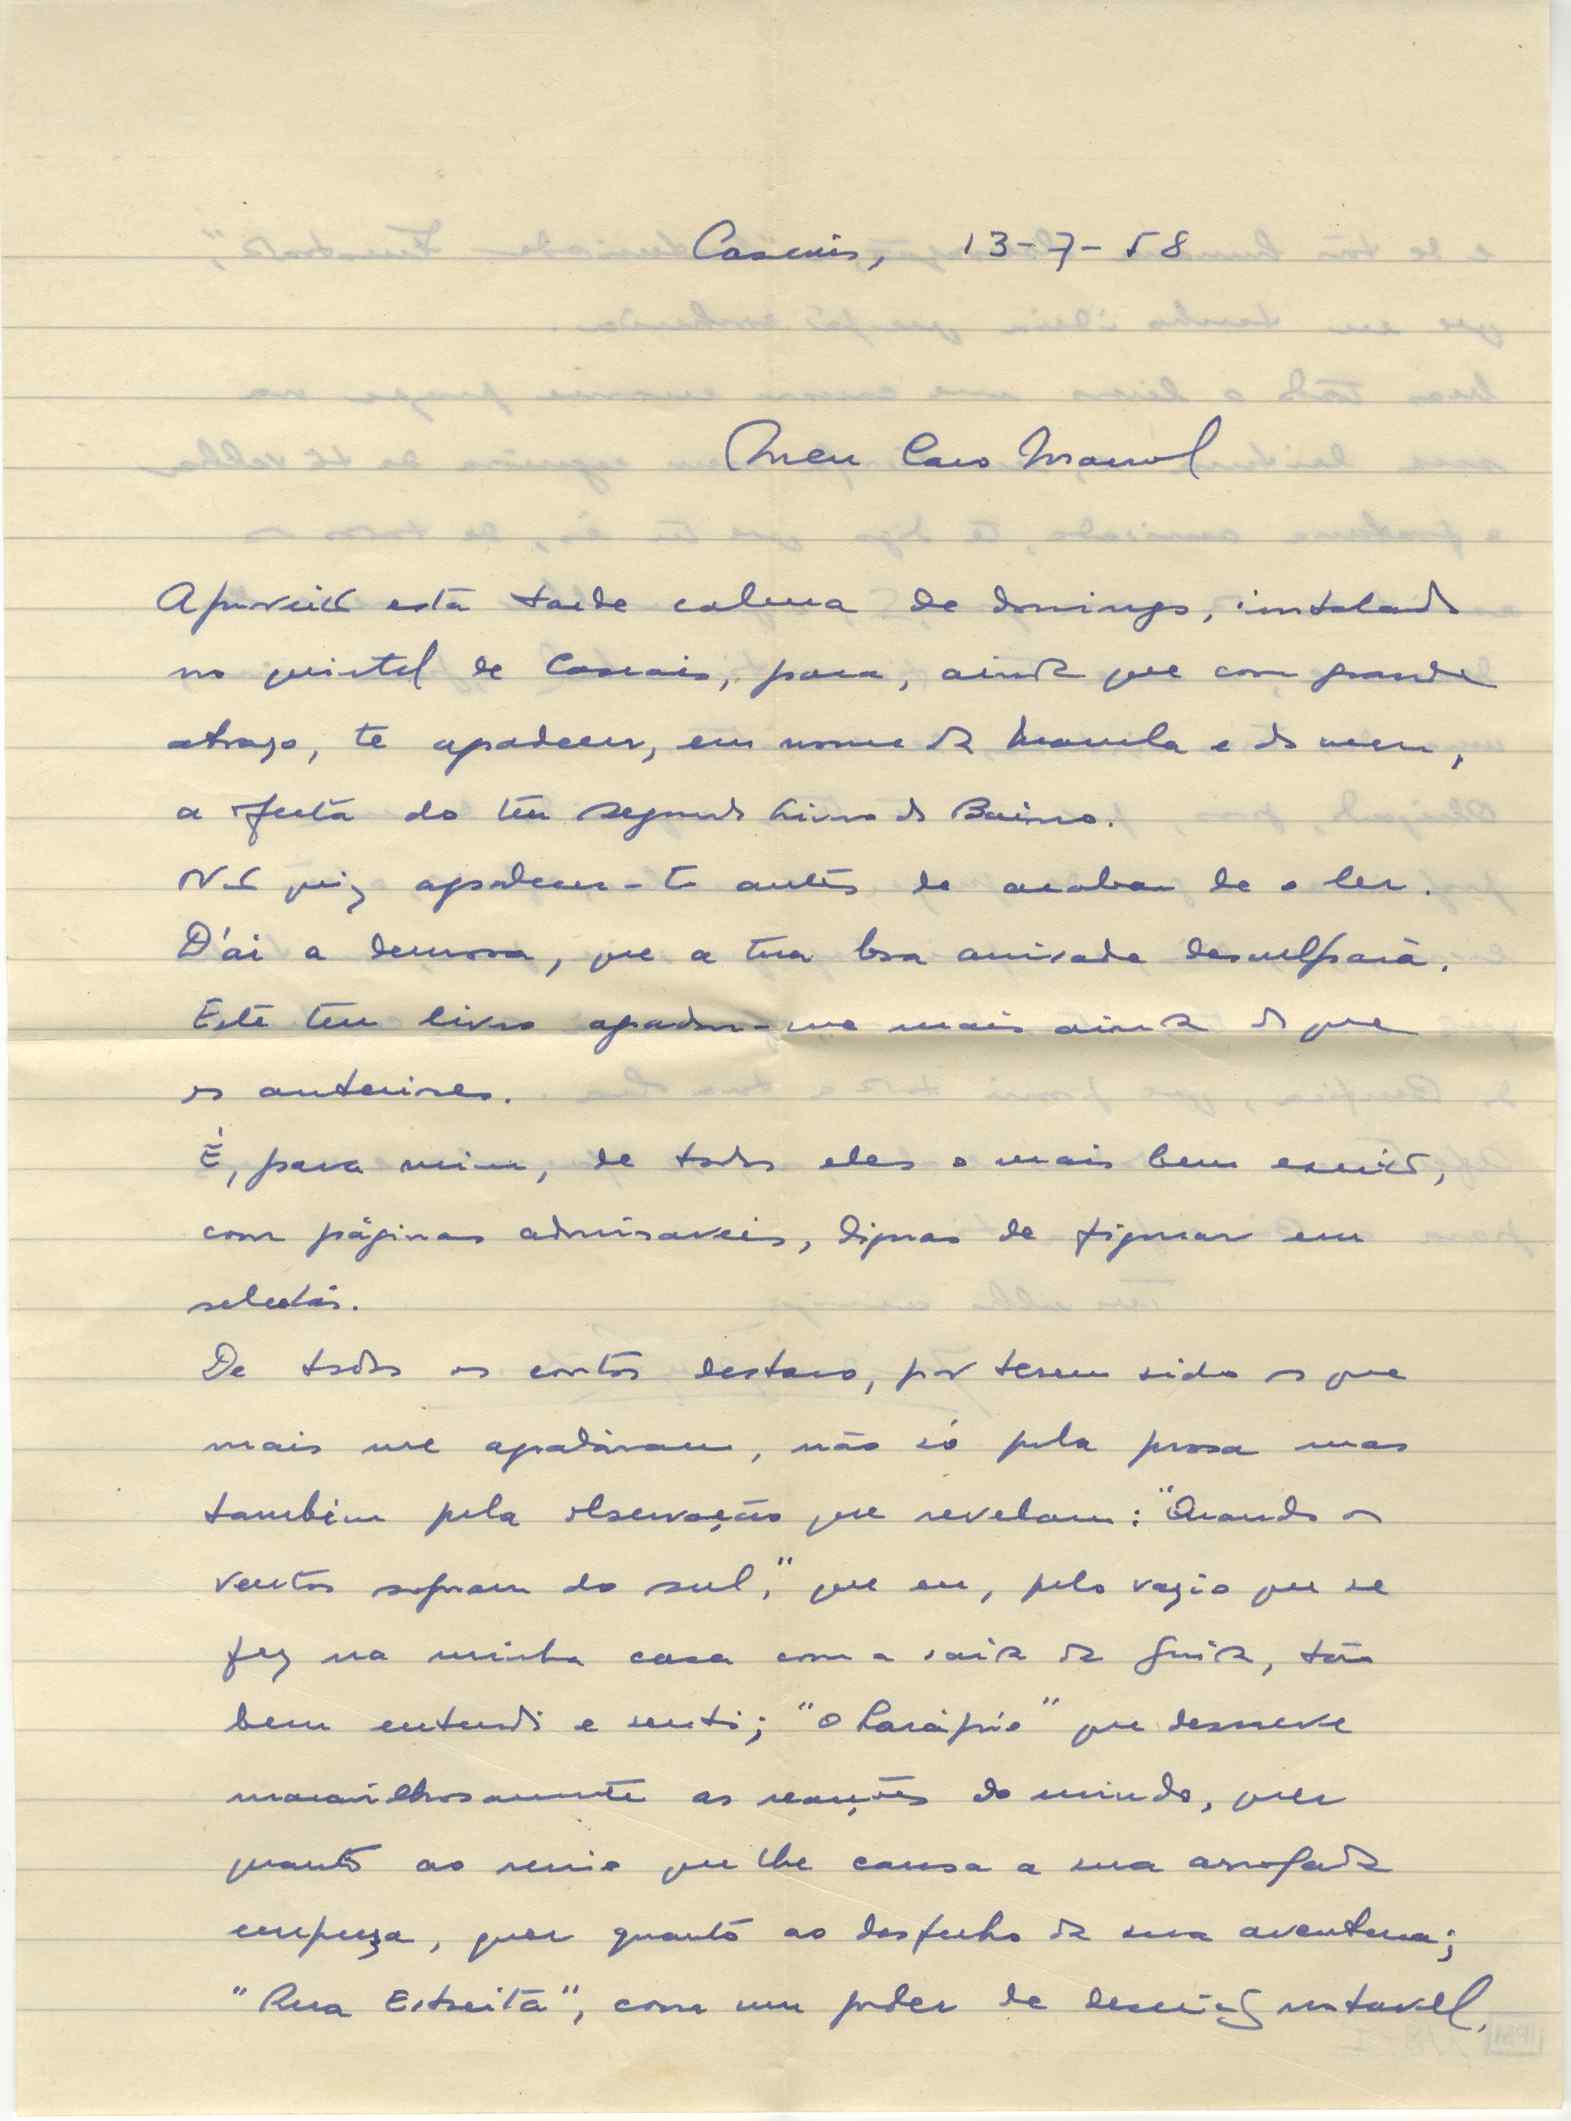 Cascais, 13-7-58
Meu Caro Manuel
Aproveito esta tarde calma de domingo, instalado
no quintal de Cascais, para, ainda que com grande
atrazo, te agradecer, em nome da Manuela e do meu,
a oferta do teu segundo Livro do Bairro.
Não quiz agradecer-te antes de acabar de o ler.
D'aí a demora, que a tua boa amizade desculpará.
Este teu livro agradou-me mais ainda do que
os anteriores.
É, para mim, de todos eles o mais bem escrito,
com páginas admiraveis, dignas de figurar em
seletas.
De todos os contos destaco, por terem sido os que
mais me agradáram, não só pela prosa mas
também pela observação que revelam: "Quando os
ventos sopram do sul," que eu, pelo vazio que se
fez na minha casa com a saida da Guida, tão
bem entendi e senti; "O Larápio" que descreve
maravilhosamente as reacções do miudo, quer
quanto ao receio que lhe causa a sua arrojada
empreza, quer quanto ao desfecho da sua aventura;
"Rua Estreita", com um poder de descrição notavel,